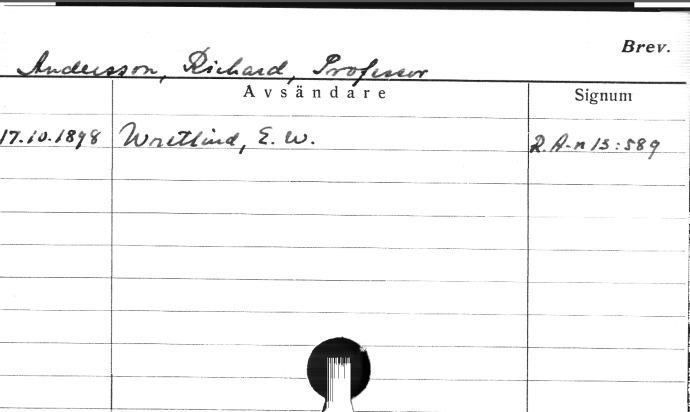 Brev.
Andersson, Richard, Professor
Avsändare Signum
17.10.1898 Wretlind, E. W. R. A-n 13:589